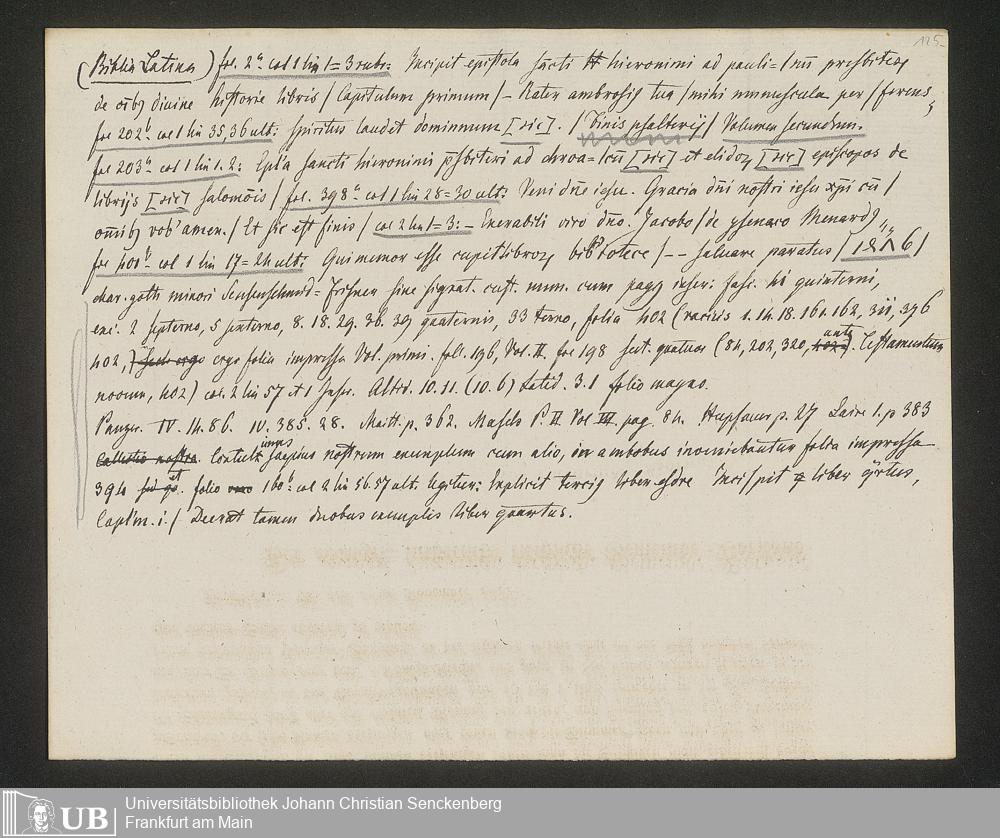 125
(Biblia Latina) fol. 2ᵃ col 1 lin 1=3 rubr: Incipit epistola sācti hieronimi ad pauli=/nū presbiteȝ
de oīb9 divine historie libris / Capitulum primum /– Rater ambrosi9 tua / mihi munuscula per / ferens,
fol 202ᵇ col 1 lin 35, 36 ult: spiritus laudet dominum [sic]. / Finis psalterij / Volumen secundum.
fol 203ᵃ col 1 lin 1. 2: Epl'a sancti hieronimi p̄sbiteri ad chroa=/cū [sic] et elidoȝ [sic] episcopos de
librijs [sic] salomōis / fol. 398ᵃ col 1 lin 28=30 ult: Veni dn̄e iesu. Gracia dn̄i nostri iesu xp̄i cū /
om̄ib9 vob' amen. / Et sic est finis / col 2 lin 1=3: – Enerabili viro dn̄o. Jacobo / de ysenaco Menard9
fol 401ᵇ col 1 lin 17=24 ult: Qui memor esse cupit libroȝ bibliotece /– – saluare paratus / 1476 /
char. goth minori Sensenschmid=Frisner sine signat. cust. num. cum pag9 inscr: fasc. 41 quinterni,
exc. 2 septerno, 5 senterno, 8. 18. 29. 36. 39 quaternis, 33 terno, folia 402 (vacuis 1. 14. 18. 161. 162, 311, 396
402,) ergo folia impressa Vol. primi. foll. 196, Vol. II. fol 198 sect. quatuor (84, 202, 320, ante Testamentum
novum, 402) col. 2 lin 57 et 1 Inscr. Altid. 10. 11. (10. 6) Latid. 3. 1 folio magno.
Panzer. IV. 14. 86. IV. 385. 28. Maitt. p. 362. Masch P. II Vol III. pag. 84. Hupfauer p. 27 Laire 1. p 383
Contuli saepius nostrum exemplum cum alio, in ambobus inveniebantur folia impressa
394 et folio 160ᵇ col 2 lin 56. 57 ult. legitur: Explicit terci9 liber esdre Inci/pit liber q̄rtus,
Capl'm. i. / Deerat tamen duobus exemplis liber quartus.
Universitätsbibliothek Johann Christian Senckenberg
Frankfurt am Main
UB